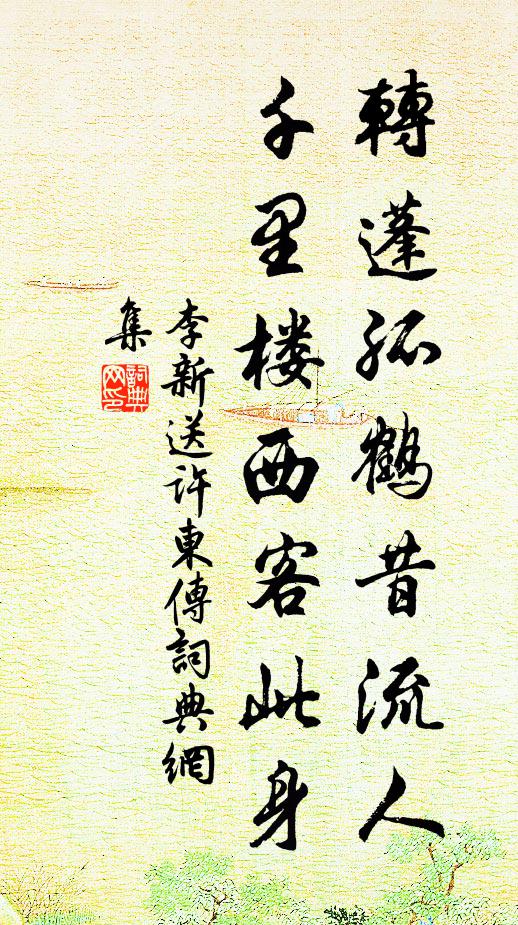 轉蓬孤鶴昔流人
千里楼西客此身
李新送许東傳詞典網
集
詞典网印